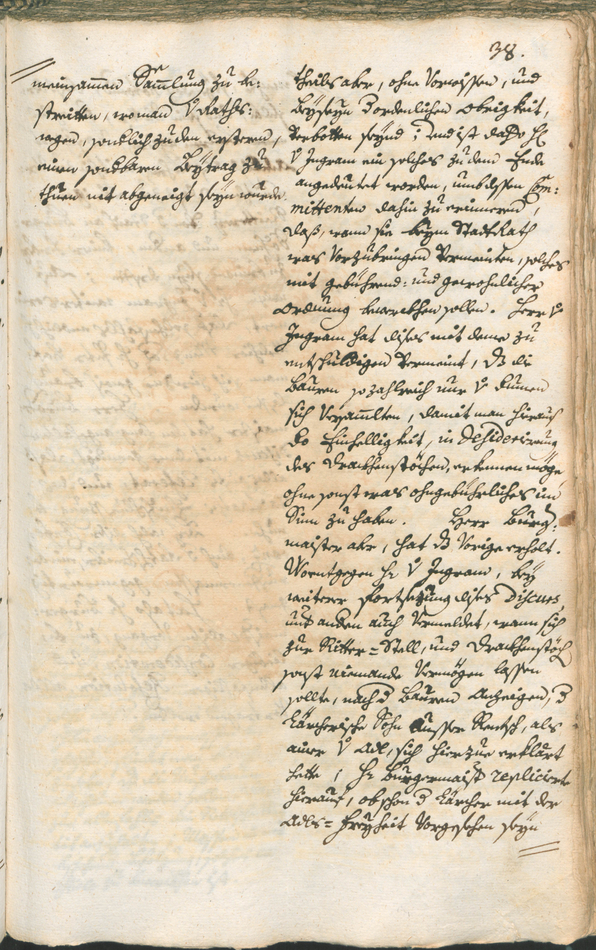 38.
meinsamen Samlung zu be-
streitten, woman V. Raths-
wegen, sonderlich zu den ersteren,
einen sonderbaren Beÿtrag zu
thuen nit abgeneigt seÿn wurde.
theils aber, ohne Vorwissen, und
beÿseÿn d ordenlichen Obrigkeit,
Verbotten seÿnd; und ist dahero H:
V Ingram ein solches zu dem Ende
angedeutet worden, umb dessen Com:
mittenten dahin zu erinneren,
daß, wann sie beÿm Stadt Rath
was Vorzubringen Vermeinten, solches
mit gebührend: und gewohnlicher
Ordnung bewerkhen sollen. Herr V
Ingram hat dises mit deme zu
entschuldigen Vermeint, dß die
Bauren so zahlreich nur V dumen
sich Versamlten, damit man hierauß
die Einhelligkeit, in Desiderierung
des Drackhenstöchen, erkennen möge
ohne sonst was ohngebührliches im
Sinn zu haben. Herr Burg:
maister aber, hat dß Vorige erholt.
Worentgegen H: V Ingram, beÿ
weiterer Fortsetzung dises Discurs,
unt anden auch Vermeldet, wann sich
zur Ritter-Stell, und Drackhenstöch
sonst niemande Vermögen lassen
sollte, nach d Bauren Anzeigen, d
Kärcherische Sohn ausser Rentsch, als
ainer V Adl, sich hierzue erklärt
hette; H: Burgermaist replicierte
hierauf, obschon d Kärcher mit der
Adls-Freÿheit Vorgesehen seÿn